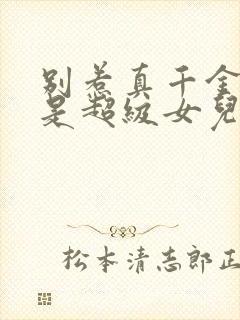 别惹真千金
是超级女兒
松本清志郎正